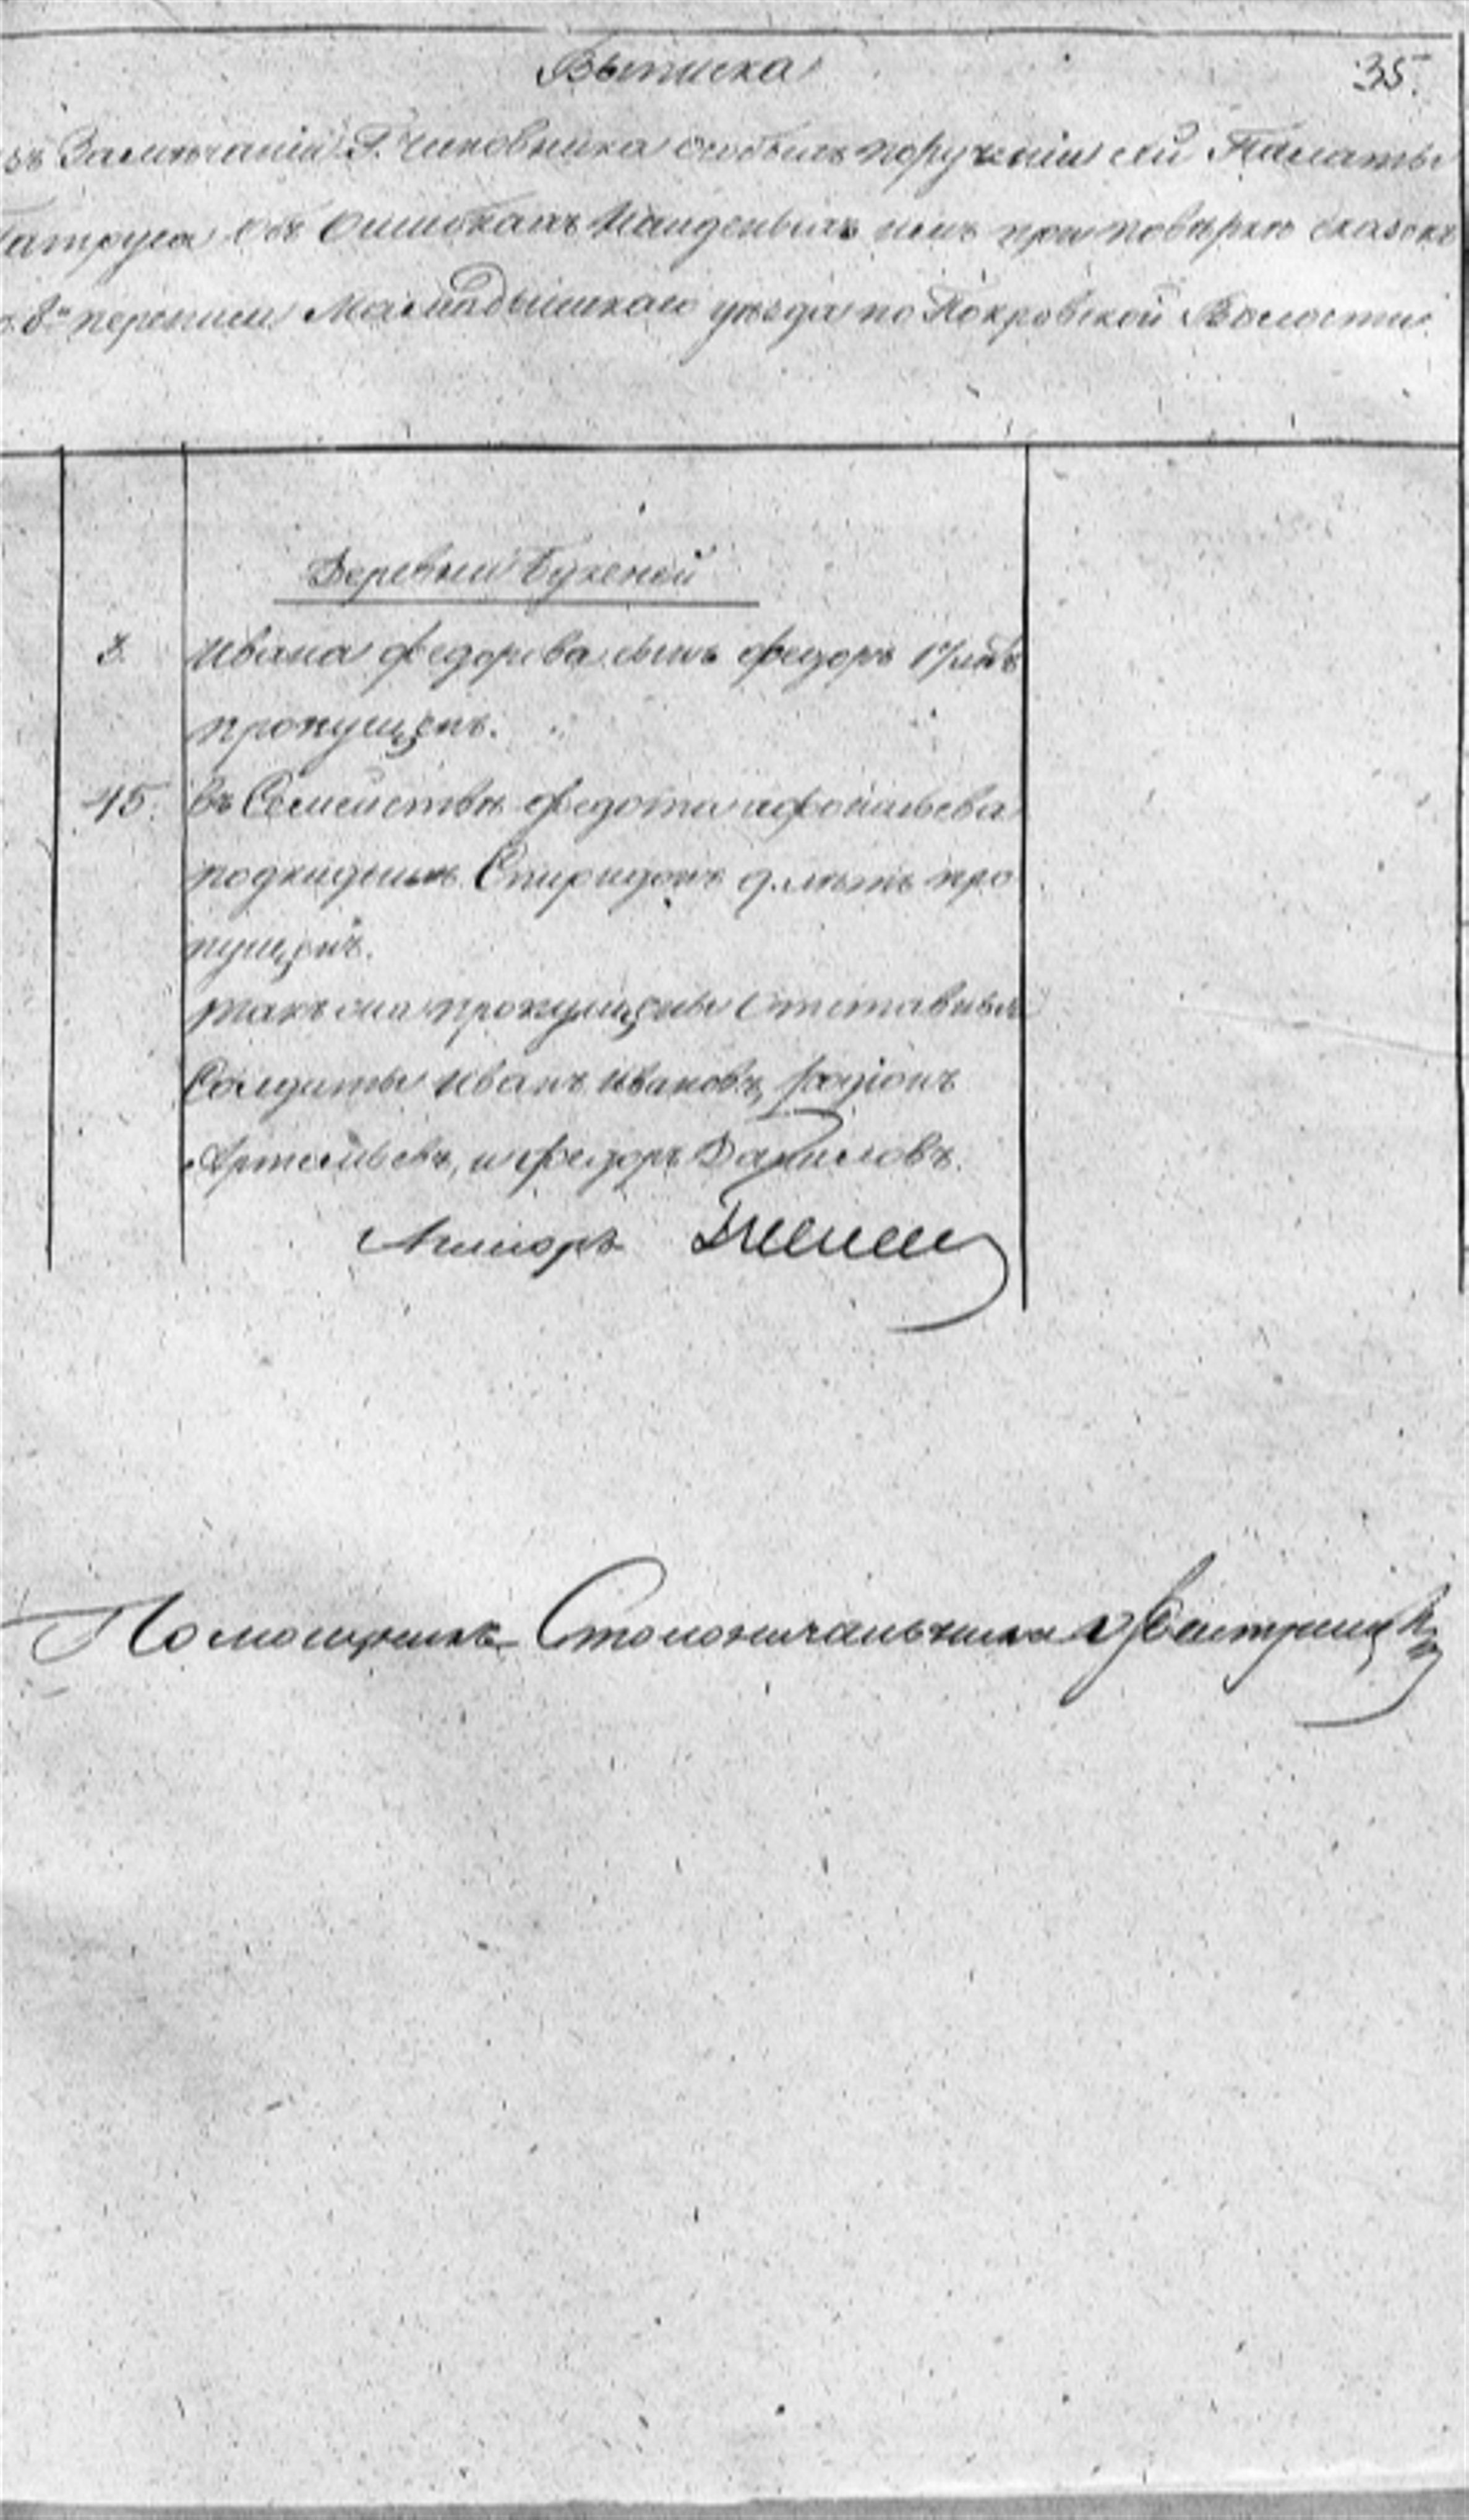 Выписка
35.
Замѣчаній Г. Чиновника особыхъ порученій сей Палаты
объ Ошибкахъ Найденныхъ имъ при повѣркѣ сказокъ
8й переписи Мамадышскаго уѣзда по Покровской Волости.
Деревни
3. Ивана Федорова сынъ Федоръ 1 1/2 лѣтъ
пропущенъ.
45. въ Семействѣ Федота Афонасьева
подкидышъ Спиридонъ 9. лѣтъ про
пущенъ.
такъ же пропущены Отставныя
Солдаты Иванъ Ивановъ, Родіонъ
Артемьевъ, и Федоръ Даниловъ.
Помощникъ Столоначальника